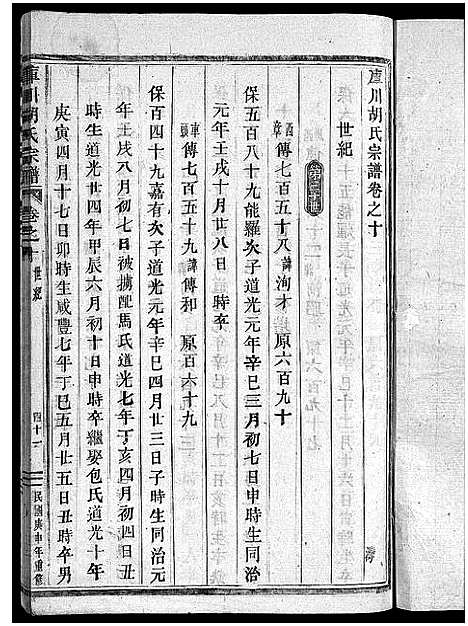 庫川胡氏宗譜卷之十
世紀
傳七百五十八 諱洵才 原六百九十
保五百八十九能羅次子道光元年辛巳三月初七日申時生同治
元年壬戌十月廿八日時卒
傳七百五十九 諱傳和 原百六十九
保百四十九嘉有次子道光元年辛巳四月廿三日子時生同治元
年壬戌八月初七日被擄配馬氏道光七年丁亥四月初四日丑
時生道光廿四年甲辰六月初十日申時卒繼娶包氏道光十年
庚寅四月十七日卯時生咸豐七年丁巳五月廿五日丑時卒男
庫川胡氏宗譜 卷之十 世紀 四十一 民國庚申年重修